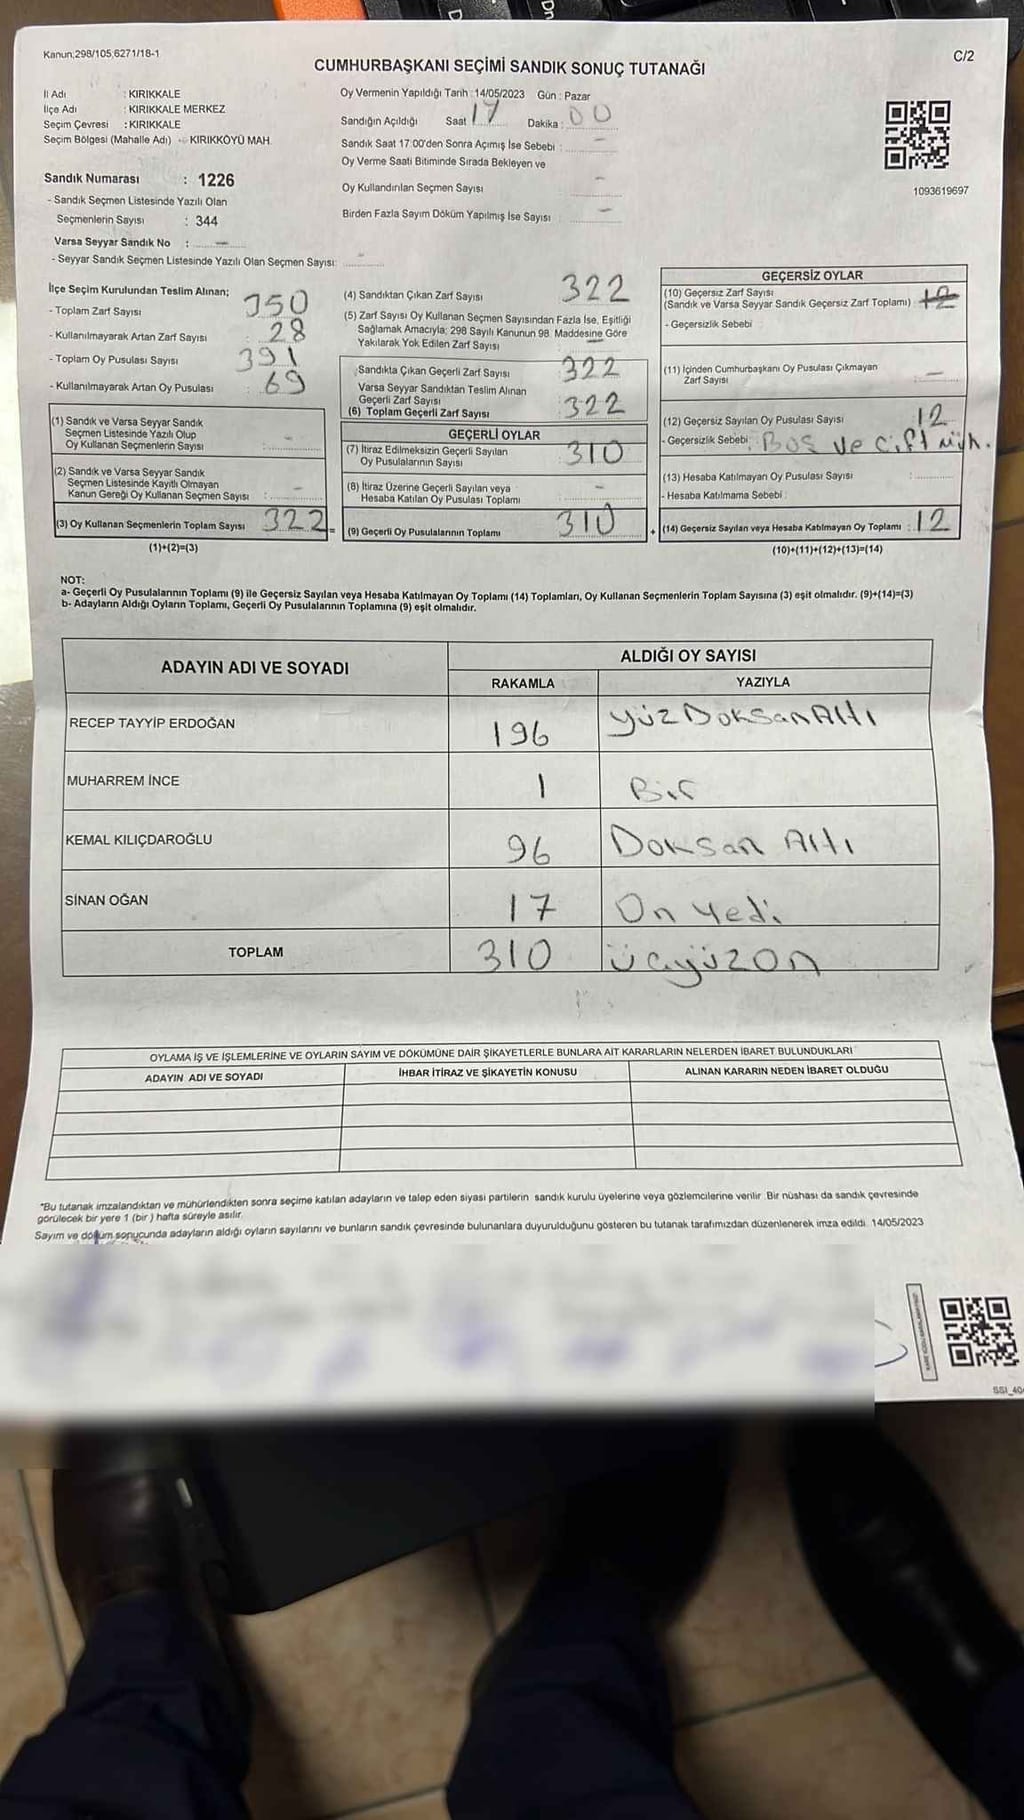 Kanun;298/105,6271/18-1
C/2
CUMHURBAŞKANI SEÇİMİ SANDIK SONUÇ TUTANAĞI
İl Adı : KIRIKKALE
İlçe Adı : KIRIKKALE MERKEZ
Seçim Çevresi : KIRIKKALE
Seçim Bölgesi (Mahalle Adı) - KIRIKKÖYÜ MAH.
Sandık Numarası : 1226
- Sandık Seçmen Listesinde Yazılı Olan
Seçmenlerin Sayısı : 344
Varsa Seyyar Sandık No : -
- Seyyar Sandık Seçmen Listesinde Yazılı Olan Seçmen Sayısı: -
Oy Vermenin Yapıldığı Tarih :14/05/2023 Gün : Pazar
Sandığın Açıldığı Saat 17 Dakika : 00
Sandık Saat 17:00'den Sonra Açımış İse Sebebi : -
Oy Verme Saati Bitiminde Sırada Bekleyen ve
Oy Kullandırılan Seçmen Sayısı -
Birden Fazla Sayım Döküm Yapılmış İse Sayısı -
1093619697
İlçe Seçim Kurulundan Teslim Alınan;
- Toplam Zarf Sayısı 350
- Kullanılmayarak Artan Zarf Sayısı : 28
- Toplam Oy Pusulası Sayısı 391
- Kullanılmayarak Artan Oy Pusulası : 69
(1) Sandık ve Varsa Seyyar Sandık
Seçmen Listesinde Yazılı Olup
Oy Kullanan Seçmenlerin Sayısı : -
(2) Sandık ve Varsa Seyyar Sandık
Seçmen Listesinde Kayıtlı Olmayan
Kanun Gereği Oy Kullanan Seçmen Sayısı : -
(3) Oy Kullanan Seçmenlerin Toplam Sayısı 322
(1)+(2)=(3)
=
(4) Sandıktan Çıkan Zarf Sayısı 322
(5) Zarf Sayısı Oy Kullanan Seçmen Sayısından Fazla İse, Eşitliği
Sağlamak Amacıyla; 298 Sayılı Kanunun 98. Maddesine Göre
Yakılarak Yok Edilen Zarf Sayısı -
Sandıkta Çıkan Geçerli Zarf Sayısı 322
Varsa Seyyar Sandıktan Teslim Alınan
Geçerli Zarf Sayısı
(6) Toplam Geçerli Zarf Sayısı 322
GEÇERLİ OYLAR
(7) İtiraz Edilmeksizin Geçerli Sayılan
Oy Pusulalarının Sayısı 310
(8) İtiraz Üzerine Geçerli Sayılan veya
Hesaba Katılan Oy Pusulası Toplamı -
(9) Geçerli Oy Pusulalarının Toplamı 310
+
GEÇERSİZ OYLAR
(10) Geçersiz Zarf Sayısı
(Sandık ve Varsa Seyyar Sandık Geçersiz Zarf Toplamı) : 12
- Geçersizlik Sebebi :
(11) İçinden Cumhurbaşkanı Oy Pusulası Çıkmayan
Zarf Sayısı -
(12) Geçersiz Sayılan Oy Pusulası Sayısı 12
- Geçersizlik Sebebi : Boş ve Çift müh.
(13) Hesaba Katılmayan Oy Pusulası Sayısı :
- Hesaba Katılmama Sebebi :
(14) Geçersiz Sayılan veya Hesaba Katılmayan Oy Toplamı : 12
(10)+(11)+(12)+(13)=(14)
NOT:
a- Geçerli Oy Pusulalarının Toplamı (9) ile Geçersiz Sayılan veya Hesaba Katılmayan Oy Toplamı (14) Toplamları, Oy Kullanan Seçmenlerin Toplam Sayısına (3) eşit olmalıdır. (9)+(14)=(3)
b- Adayların Aldığı Oyların Toplamı, Geçerli Oy Pusulalarının Toplamına (9) eşit olmalıdır.
ADAYIN ADI VE SOYADI
ALDIĞI OY SAYISI
RAKAMLA YAZIYLA
RECEP TAYYİP ERDOĞAN 196 yüzDoksanAltı
MUHARREM İNCE 1 Bir
KEMAL KILIÇDAROĞLU 96 Doksan Altı
SİNAN OĞAN 17 On yedi
TOPLAM 310 üçyüzon
OYLAMA İŞ VE İŞLEMLERİNE VE OYLARIN SAYIM VE DÖKÜMÜNE DAİR ŞİKAYETLERLE BUNLARA AİT KARARLARIN NELERDEN İBARET BULUNDUKLARI
ADAYIN ADI VE SOYADI İHBAR İTİRAZ VE ŞİKAYETİN KONUSU ALINAN KARARIN NEDEN İBARET OLDUĞU
*Bu tutanak imzalandıktan ve mühürlendikten sonra seçime katılan adayların ve talep eden siyasi partilerin sandık kurulu üyelerine veya gözlemcilerine verilir .Bir nüshası da sandık çevresinde
görülecek bir yere 1 (bir ) hafta süreyle asılır.
Sayım ve döküm sonucunda adayların aldığı oyların sayılarını ve bunların sandık çevresinde bulunanlara duyurulduğunu gösteren bu tutanak tarafımızdan düzenlenerek imza edildi. 14/05/2023